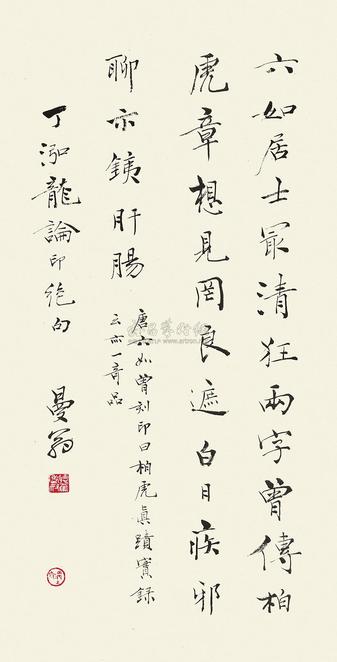 六如居士冣清狂兩字曾傳柏
虎章想見罔良遮白日疾邪
聊亦銕肝腸
唐六如曾刻印曰柏虎眞蹟實錄
云亦一奇品
丁泓龍論印絶句
曼翁